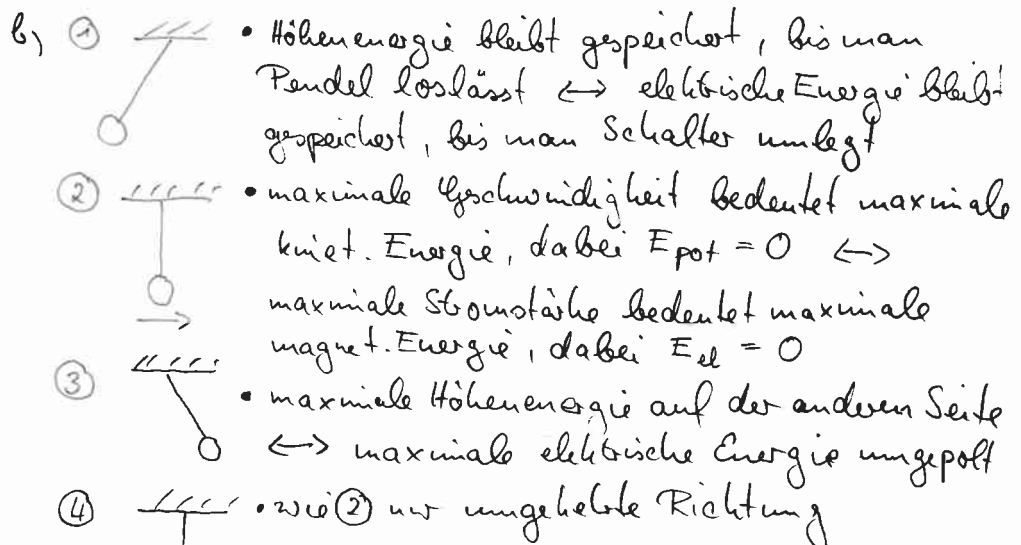 b) ① • Höhenenergie bleibt gespeichert, bis man
Pendel loslässt ↔ elektrische Energie bleibt
gespeichert, bis man Schalter umlegt
② • maximale Geschwindigkeit bedeutet maximale
kinet. Energie, dabei E_pot = 0 ↔
maximale Stromstärke bedeutet maximale
magnet. Energie, dabei E_el = 0
③ • maximale Höhenenergie auf der anderen Seite
↔ maximale elektrische Energie umgepolt
④ • wie ② nur umgekehrte Richtung